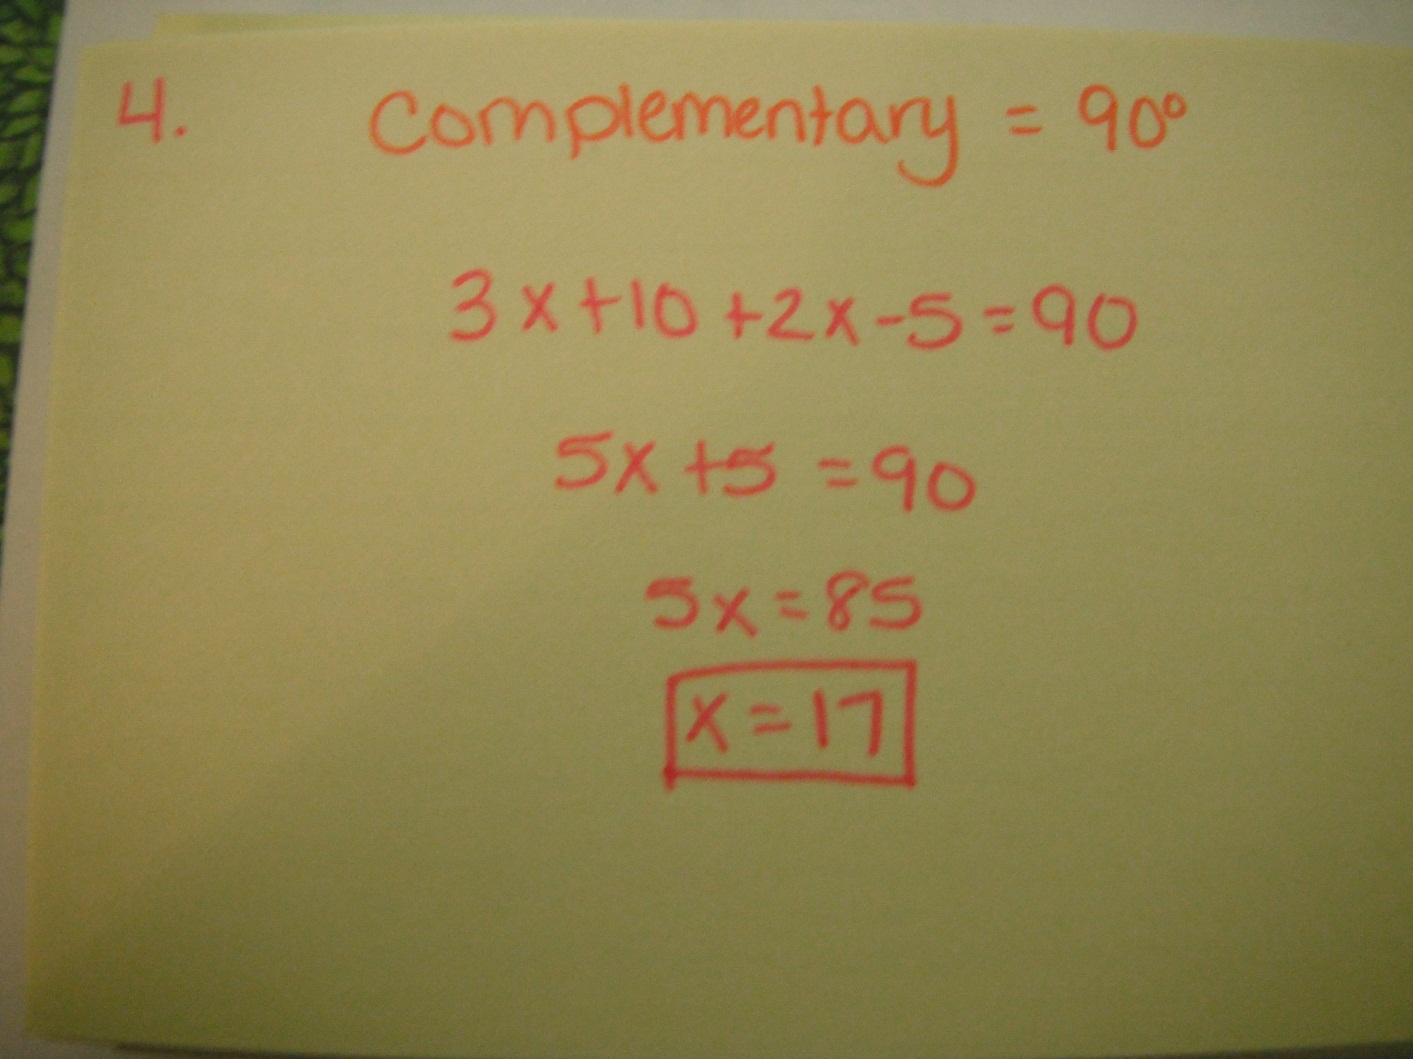 4. Complementary = 90°
3x+10+2x-5=90
5x+5=90
5x=85
x=17